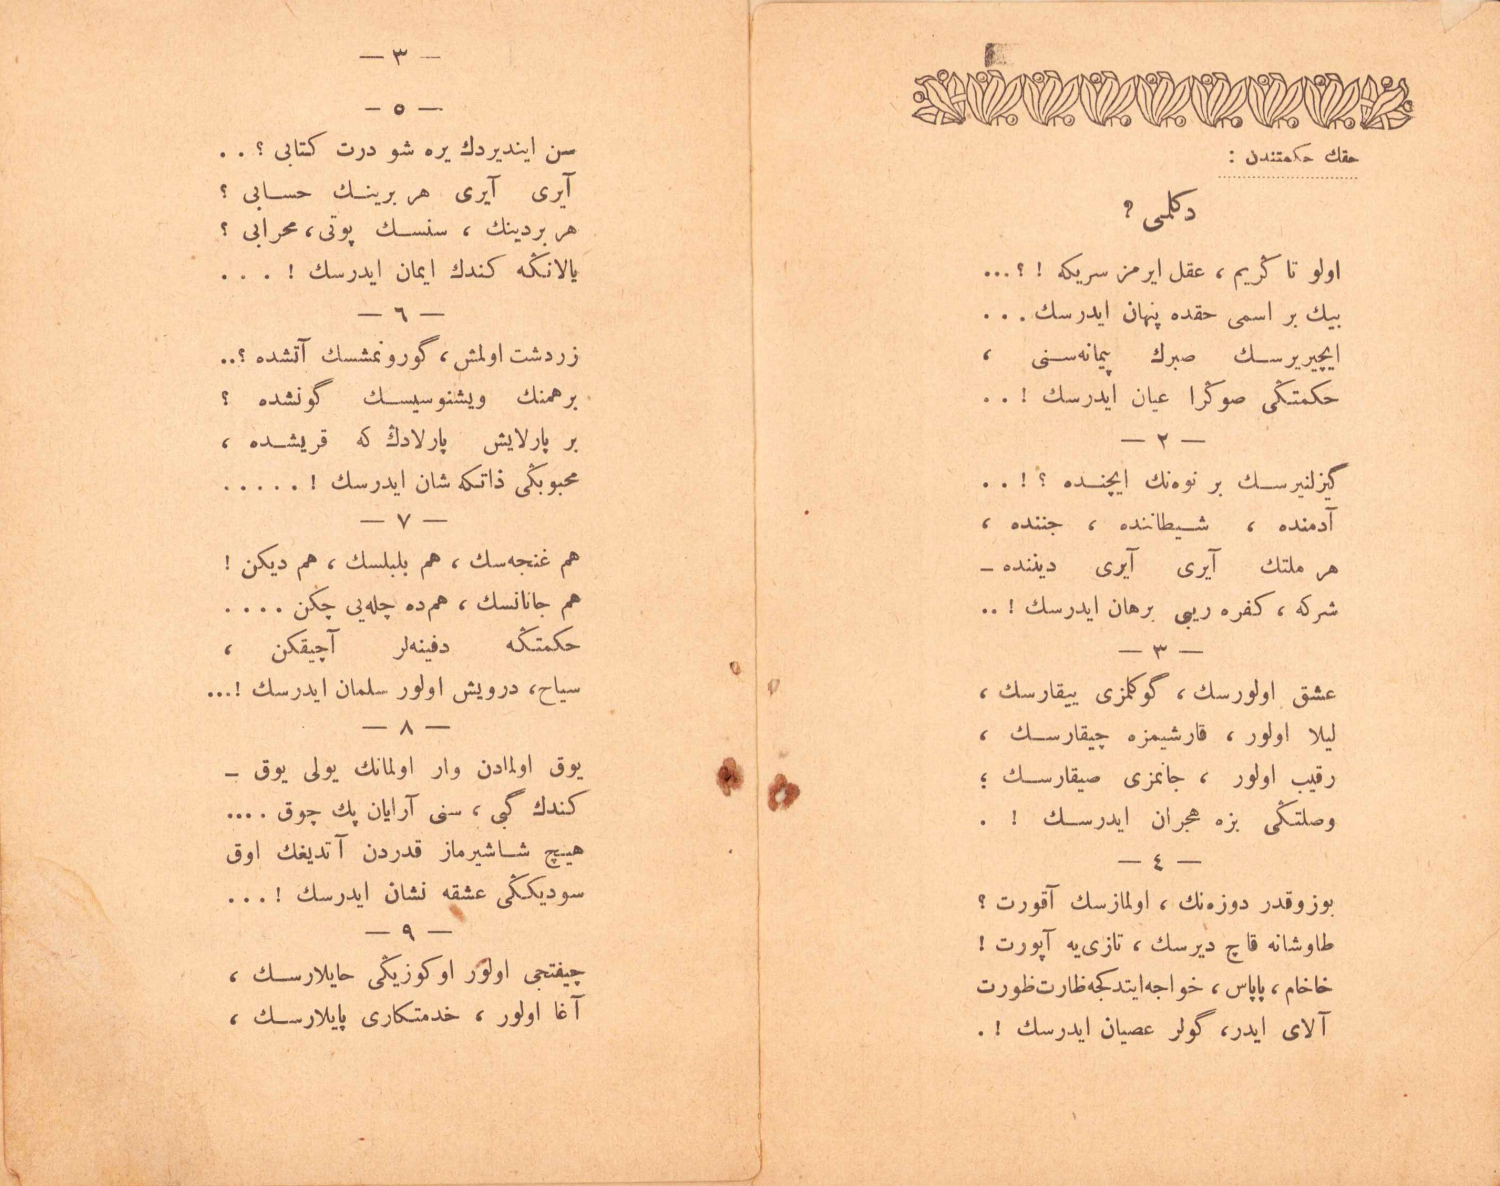 حقك حكمتندن :
دكلمی ?
اولو تا ڭريم ، عقل ايرمز سريكه ! ؟...
بيك بر اسمی حقده پنهان ايدرسك . . .
ايچيريرسك صبرك پيمانه‌سنی ،
حكمتڭی صوڭرا عيان ايدرسك ! . .
— ٢ —
گيزلنيرسك بر نوه‌نك ايچنده ؟ ! . .
آدمنده ، شيطاننده ، جننده ،
هر ملتك آيری آيری ديننده —
شركه ، كفره ريبی برهان ايدرسك ! ..
— ٣ —
عشق اولورسك ، گوكلمزی ييقارسك ،
ليلا اولور ، قارشيمزه چيقارسك ،
رقيب اولور ، جانمزی صيقارسك ؛
وصلتڭی بزه هجران ايدرسك ! .
— ٤ —
بوزوقدر دوزه‌نك ، اولمازسك آقورت ؟
طاوشانه قاچ ديرسك ، تازی‌يه آپورت !
خاخام ، پاپاس ، خواجه‌ايتدكجه ظارت ظورت
آلای ايدر، گولر عصيان ايدرسك ! .
— ٣ —
— ٥ —
سن اينديردك يره شو درت كتابی ؟ . .
آيری آيری هر برينك حسابی ؟
هر بردينك ، سنسك پوتی ، محرابی ؟
يالانڭه كندك ايمان ايدرسك ! . . .
— ٦ —
زردشت اولمش ، گورونمشسك آتشده ؟..
برهمنك ويشنوسيسك گونشده ؟
بر پارلايش پارلادڭ كه قريشده ،
محبوبڭی ذاتكه شان ايدرسك ! . . . . .
— ٧ —
هم غنجه‌سك ، هم بلبلسك ، هم ديكن !
هم جانانسك ، هم‌ده چله‌يی چكن . . . .
حكمتڭه دفينه‌لر آچيقكن ،
سياح، درويش اولور سلمان ايدرسك !...
— ٨ —
يوق اولمادن وار اولمانك يولی يوق —
كندك گبی ، سنی آرايان پك چوق . ...
هيچ شاشيرماز قدردن آتديغك اوق
سوديكڭی عشقه نشان ايدرسك ! . . .
— ٩ —
چيفتجی اولور اوكوزيڭی حايلارسك ،
آغا اولور ، خدمتكاری پايلارسك ،